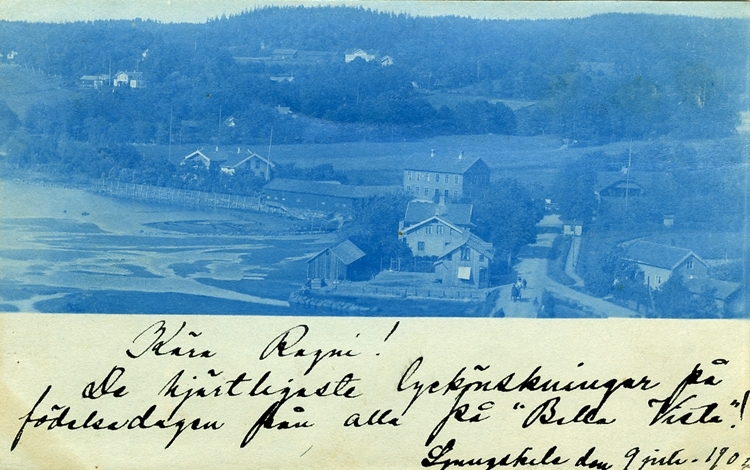 Kära Ragni!
De hjärtligaste lyckönskningar på
födelsedagen från alla på "Bella Vista"!
Ljungskile den 9 juli - 190